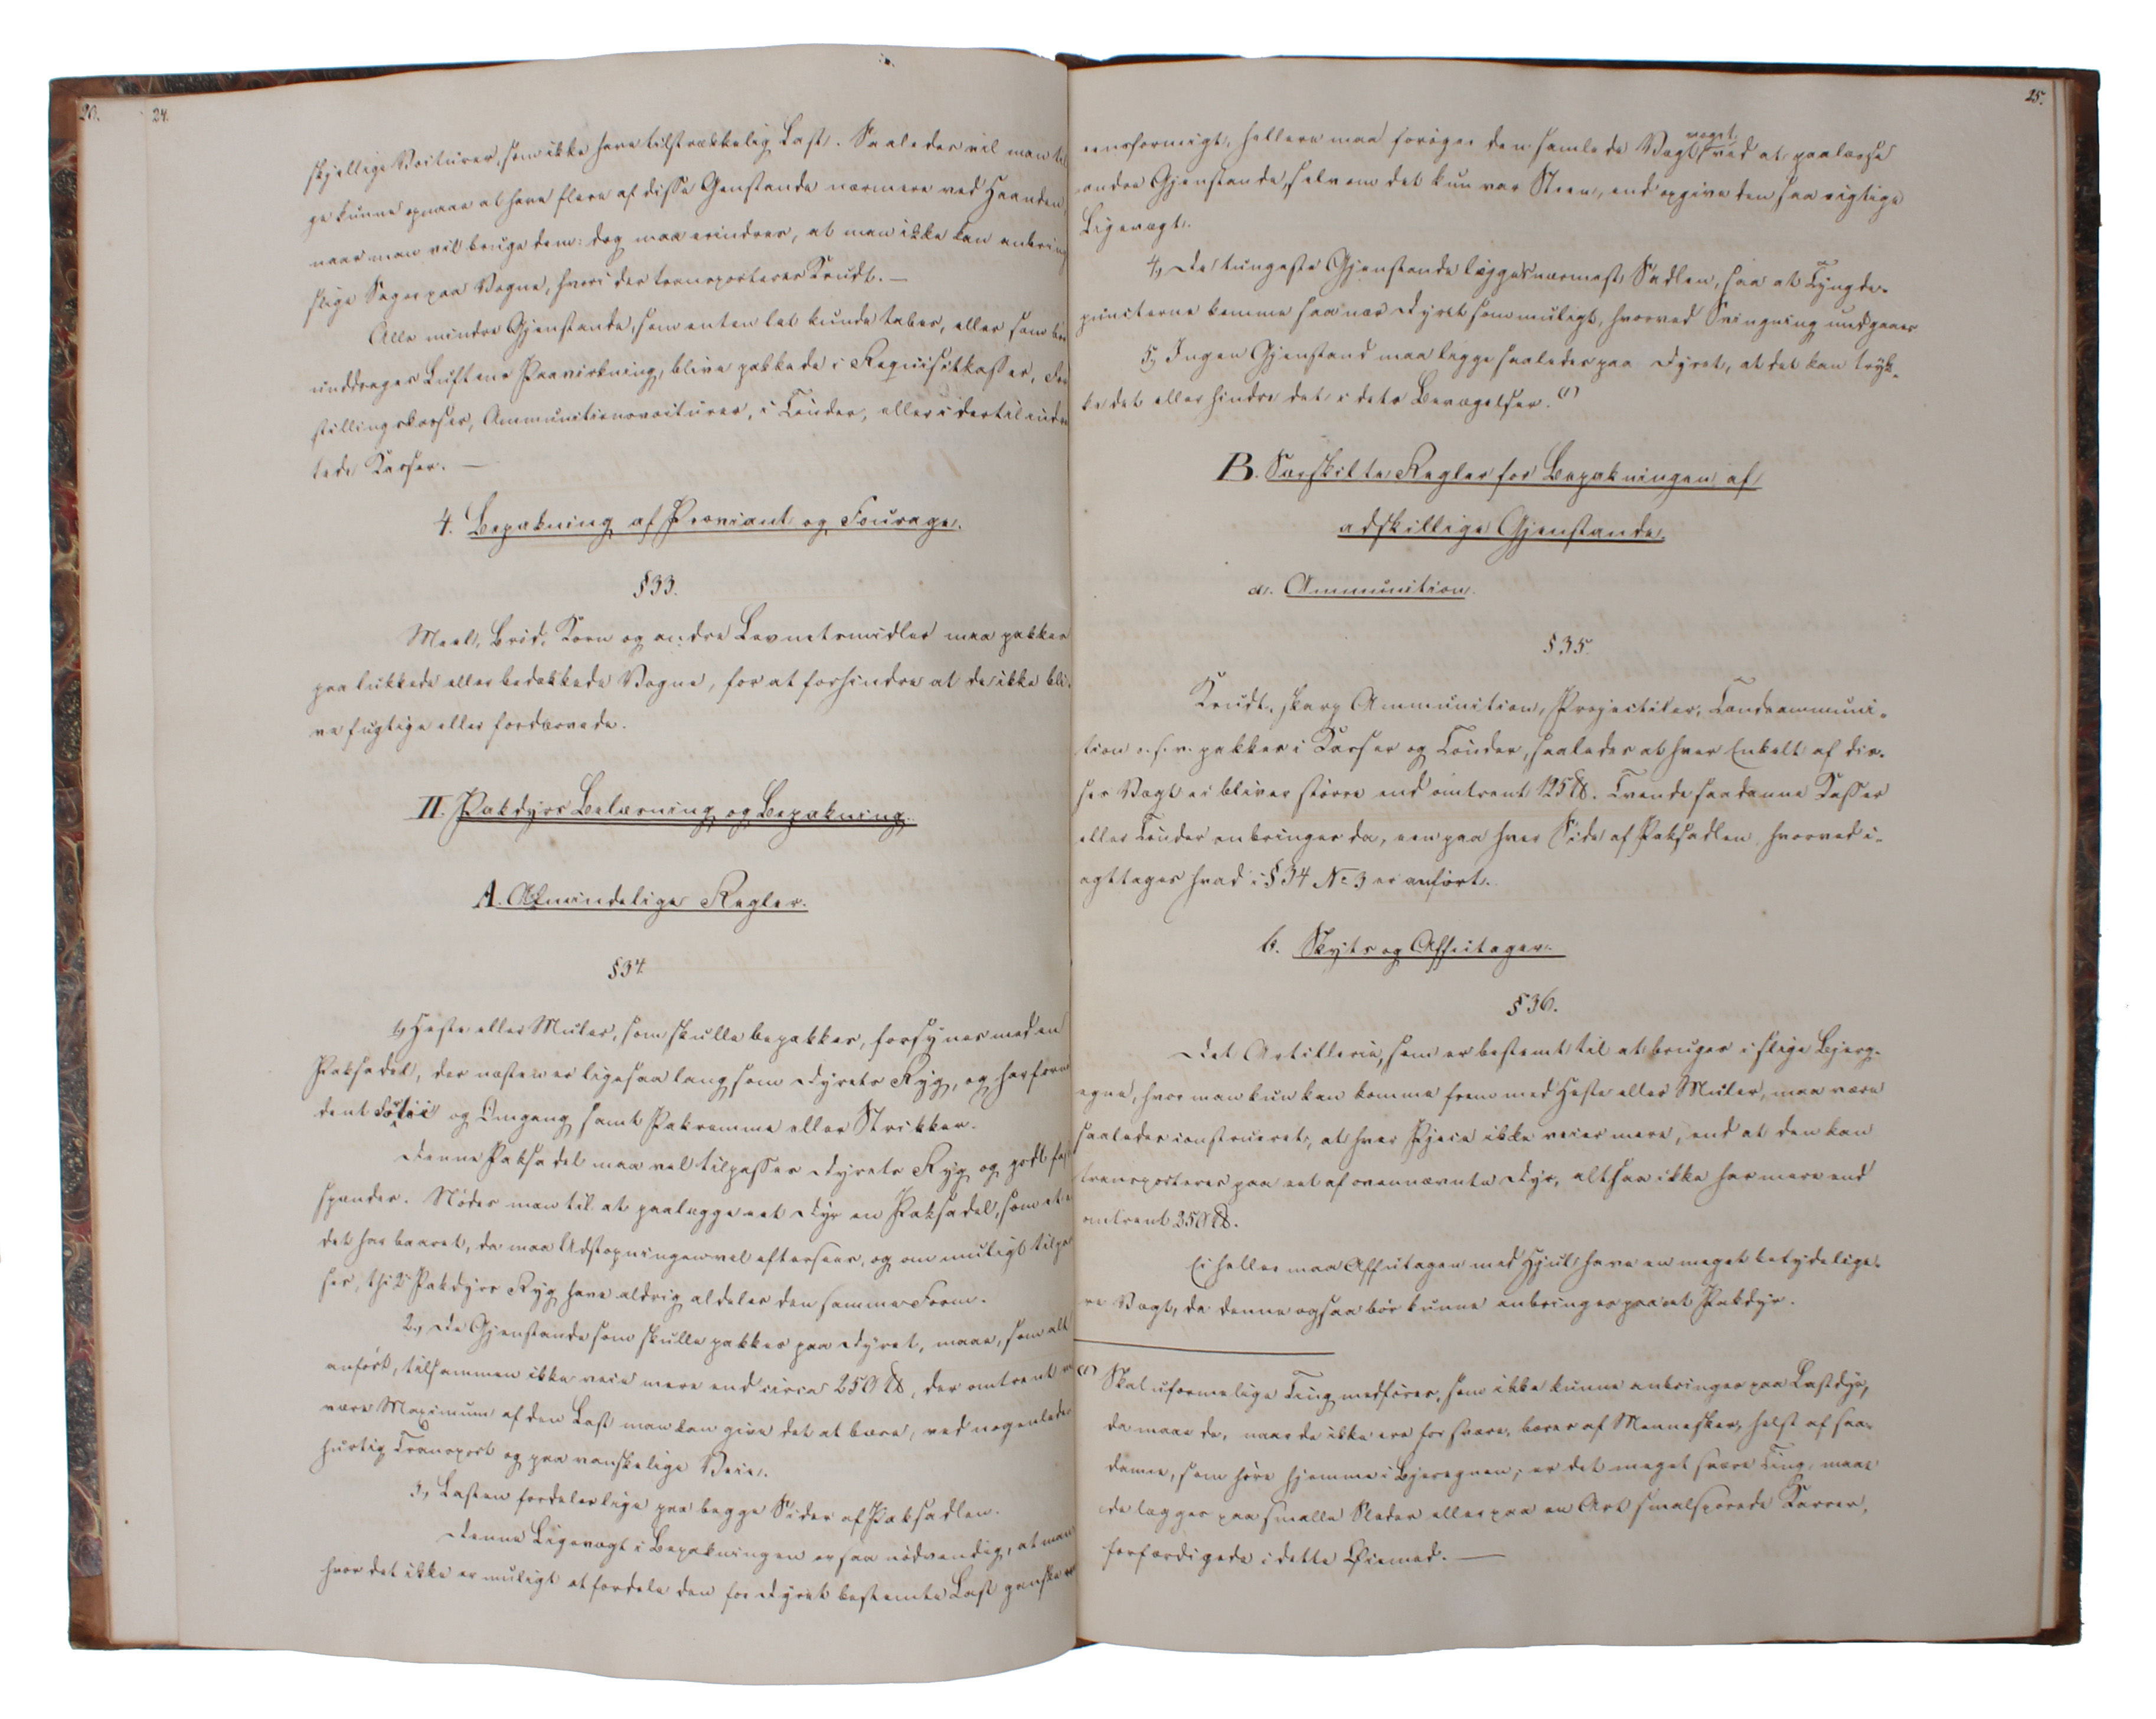 20.
24.
skjellige Voiturer, som ikke have tilstrækkelig Last. Saaledes vil man til
ge kunne opnaae at have flere af disse Genstande nærmere ved Haanden,
naar man vil bruge dem: dog maa erindres, at man ikke kan anbring
slige Sager paa Vogne, hvori der transporteres Krudt. —
Alle mindre Gjenstande, som enten let kunde tabes, eller som bør
unddrages Luftens Paavirkning, blive pakkede i Requisitkasser, For
stillingskasser, Ammunitionsvoiturer, i Tønder, eller i dertil indr
tede Kasser. —
4. Bepakning af Proviant og Fourage.
§33.
Meel, Brød, Korn og andre Levnetsmidler maa pakkes
paa lukkede eller bedækkede Vogne, for at forhindre at de ikke bli-
ve fugtige eller fordærvede.
II. Pakdyrs Belæsning og Bepakning.
A. Almindelige Regler.
§34.
1, Heste eller Muler, som skulle bepakkes, forsynes med en
Paksadel, der næsten er ligesaa lang som Dyrets Ryg, og har for
dent og Omgang samt Pakremme eller Strikker.
Denne Paksadel maa vel tilpasses Dyrets Ryg og godt fast
spændes. Nødes man til at paalægge eet Dyr en Paksadel, som et a
det har baaret, da maa Udstopningen vel eftersees, og om muligt tilpas
ses, thi 2 Pakdyrs Ryg have aldrig aldeles den samme Form.
2, De Gjenstande som skulle pakkes paa Dyret, maae, som alt
anført, tilsammen ikke veie mere end circa 250 ℔, der omtrent
være Maximum af den Last man kan give det at bære, ved nogenledes
hurtig Transport og paa vanskelige Veie.
3, Lasten fordeles lige paa begge Sider af Paksadlen.
Denne Ligevægt i Bepakningen er saa nødvendig, at man
hvor det ikke er muligt at fordele den for Dyret bestemte Last ganske
25.
eensformigt, hellere maa forøges den samlede Vægt noget ved at paalæsse
andre Gjenstande, selv om det kun var Steen, end opgive den saa vigtige
Ligevægt.
4, De tungeste Gjenstande lægges nærmest Sadlen, saa at Tyngde-
puncterne komme saa nær Dyret som muligt, hvorved Svingning undgaaes
5, Ingen Gjenstand maa ligge saaledes paa Dyret, at det kan tryk-
ke det eller hindre det i dets Bevægelser. (1)
B. Særskilte Regler for Bepakningen af
adskillige Gjenstande.
a. Ammunition.
§35.
Krudt, skarp Ammunition, Projectiler, Tændeammuni-
tion o.s.v. pakkes i Kasser og Tønder, saaledes at hver Enkelt af dis-
ses Vægt ei bliver større end omtrent 125 ℔. Tvende saadanne Kasser
eller Tønder anbringes da, een paa hver Side af Paksadlen, hvorved i-
agttages hvad i §34 No 3 er anført.
b. Skyts og Affutager.
§36.
Det Artillerie, som er bestemt til at bruges i slige Bjerg-
egne, hvor man kun kan komme frem med Heste eller Muler, maa være
saaledes construeret, at hver Pjece ikke veier mere, end at den kan
transporteres paa eet af ovennævnte Dyr, altsaa ikke har mere end
omtrent 250 ℔.
Ei heller maa Affutagen med Hjul have en meget betydelige-
re Vægt, da denne ogsaa bør kunne anbringes paa et Pakdyr.
(1) Skal uformelige Ting medføres, som ikke kunne anbringes paa Lastdyr,
da maae de, naar de ikke ere for svære, bæres af Mennesker, helst af saa-
danne, som høre hjemme i Bjeregnen; er det meget svære Ting, maae
de lægges paa smalle Slæder eller paa en Art smalsporede Karrer,
forfærdigede i dette Øiemed. —